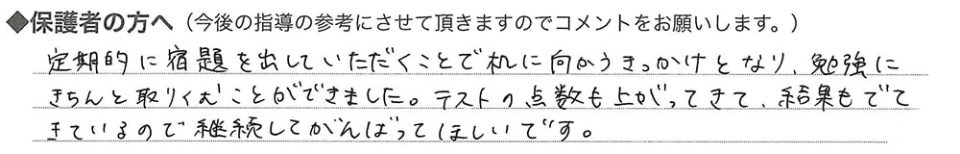 ◆保護者の方へ（今後の指導の参考にさせて頂きますのでコメントをお願いします。）
定期的に宿題を出していただくことで机に向かうきっかけとなり、勉強に
きちんと取りくむことができました。テストの点数も上がってきて、結果もでて
きているので継続してがんばってほしいです。